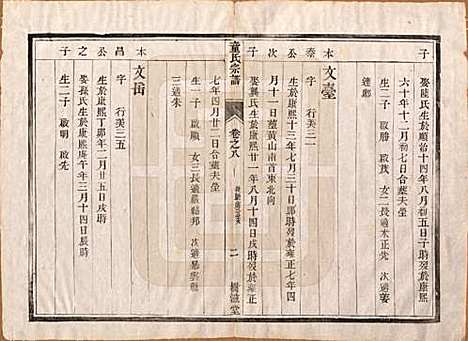 子 娶陸氏生於順治十四年八月初五日子時歿於康熙
六十年十二月初七日合葬夫塋
生二子 啟勝 啟茂 女二長適木正先 次適婁
達鄉
本 文臺
泰 字 行美三二
公 生於康熙十三年七月三十日卯時歿於雍正七年四
月十一日葬黃山南首東北向
之 娶龔氏生於康熙廿一年八月十四日戌時歿於雍正
童氏宗譜 卷之八 二 樹滋堂
七年四月廿二日合葬夫塋
子 生一子 啟順 女三長適嚴 邦 次適 載
三適朱
本 文岳
昌 字 行美三五
公 生於康熙丁卯年二月廿五日戌時
之 娶孫氏生於康熙庚午年三月十四日辰時
子 生二子 啟明 啟先